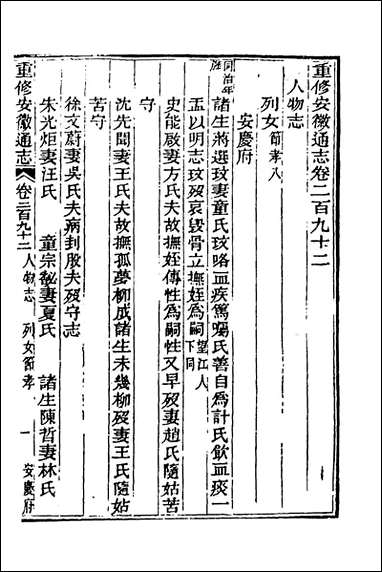 重修安徽通志卷二百九十二
人物志
列女 節孝八
安慶府
同治年旌
諸生蔣選玟妻童氏玟咯血疾篤囑氏善自為計氏飲血痰一
盂以明志玟歿哀毀骨立撫姪為嗣 望江人下同
史能啟妻方氏夫故撫姪傳性為嗣性又早歿妻趙氏隨姑苦
守
沈先聞妻王氏夫故撫孤夢柳成諸生未幾柳歿妻王氏隨姑
苦守
徐文蔚妻吳氏夫病刲股夫歿守志
朱光炬妻汪氏 童宗祕妻夏氏 諸生陳哲妻林氏
重修安徽通志 卷二百九十二 人物志 列女節孝 一 安慶府